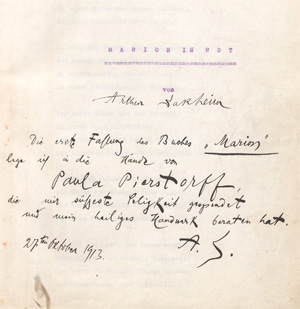 MARION IN NOT
von
Arthur Sakheim
Die erste Fassung des Buches „Marion"
lege ich in die Hände von
Paula Pierstorff,
die mir süsseste Seligkeit gespendet
und mein heiliges Handwerk beraten hat.
27ten Oktober 1913. A. S.